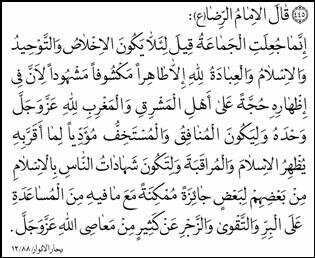 ﴿٤٤٥﴾ قَالَ الْإِمَامُ الرِّضَا(ع):
إِنَّمَا جُعِلَتِ الْجَمَاعَةُ قِيلَ لِئَلَّا يَكُونَ الْإِخْلَاصُ وَالتَّوْحِيدُ
وَالْإِسْلَامُ وَالْعِبَادَةُ لِلَّهِ إِلَّا ظَاهِراً مَكْشُوفاً مَشْهُوداً لِأَنَّ فِي
إِظْهَارِهِ حُجَّةً عَلَى أَهْلِ الْمَشْرِقِ وَالْمَغْرِبِ لِلَّهِ عَزَّ وَجَلَّ
وَحْدَهُ وَلِيَكُونَ الْمُنَافِقُ وَالْمُسْتَخِفُّ مُؤَدِّياً لِمَا أَقَرَّ بِهِ
يُظْهِرُ الْإِسْلَامَ وَالْمُرَاقَبَةَ وَلِتَكُونَ شَهَادَاتُ النَّاسِ بِالْإِسْلَامِ
مِنْ بَعْضِهِمْ لِبَعْضٍ جَائِزَةً مُمْكِنَةً مَعَ مَا فِيهِ مِنَ الْمُسَاعَدَةِ
عَلَى الْبِرِّ وَالتَّقْوَى وَالزَّجْرِ عَنْ كَثِيرٍ مِنْ مَعَاصِي اللَّهِ عَزَّ وَجَلَّ.
بحار الانوار/١٢/٨٨